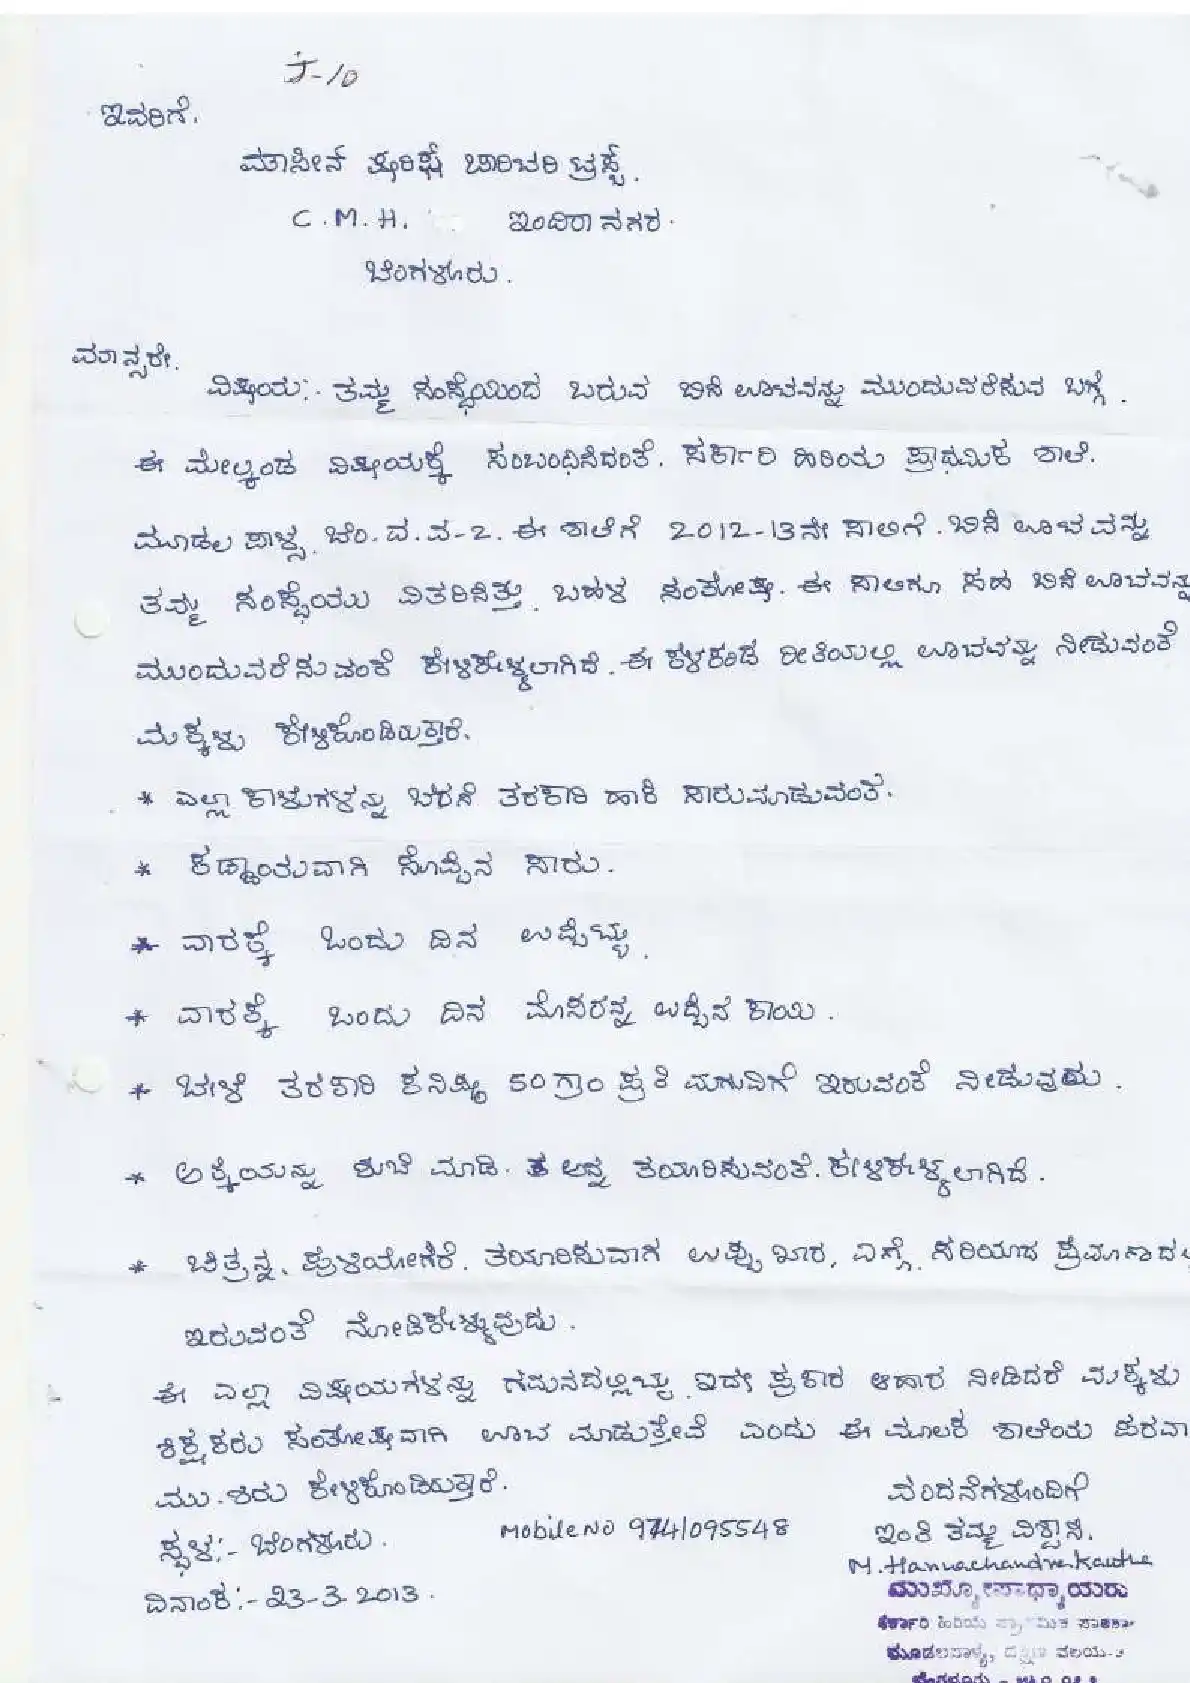 J-10
ಇವರಿಗೆ.
ಚಾರಿಟರಿ ಟ್ರಸ್ಟ್.
C.M.H. ಇಂದಿರಾನಗರ.
ಬೆಂಗಳೂರು.
ಮಾನ್ಯರೇ.
ವಿಷಯ:- ತಮ್ಮ ಸಂಸ್ಥೆಯಿಂದ ಬರುವ ಬಿಸಿ ಊಟವನ್ನು ಮುಂದುವರೆಸುವ ಬಗ್ಗೆ.
ಈ ಮೇಲ್ಕಂಡ ವಿಷಯಕ್ಕೆ ಸಂಬಂಧಿಸಿದಂತೆ. ಸರ್ಕಾರಿ ಹಿರಿಯ ಪ್ರಾಥಮಿಕ ಶಾಲೆ.
ಮೂಡಲ ಪಾಳ್ಯ. ಬೆಂ.ದ.ವ-2. ಈ ಶಾಲೆಗೆ 2012-13ನೇ ಸಾಲಿಗೆ. ಬಿಸಿ ಊಟವನ್ನು
ತಮ್ಮ ಸಂಸ್ಥೆಯು ವಿತರಿಸಿತ್ತು. ಬಹಳ ಸಂತೋಷ. ಈ ಸಾಲಿಗೂ ಸಹ ಬಿಸಿ ಊಟವನ್ನು
ಮುಂದುವರೆಸುವಂತೆ ಕೇಳಿಕೊಳ್ಳಲಾಗಿದೆ. ಈ ಕೆಳಕಂಡ ರೀತಿಯಲ್ಲಿ ಊಟವನ್ನು ನೀಡುವಂತೆ
ಮಕ್ಕಳು ಕೇಳಿಕೊಂಡಿರುತ್ತಾರೆ.
* ಎಲ್ಲಾ ಕಾಳುಗಳನ್ನು ಬೆರೆಸಿ ತರಕಾರಿ ಹಾಕಿ ಸಾರುಮಾಡುವಂತೆ.
* ಕಡ್ಡಾಯವಾಗಿ ಸೊಪ್ಪಿನ ಸಾರು.
* ವಾರಕ್ಕೆ ಒಂದು ದಿನ ಉಪ್ಪಿಟ್ಟು.
* ವಾರಕ್ಕೆ ಒಂದು ದಿನ ಮೊಸರನ್ನ ಉಪ್ಪಿನ ಕಾಯಿ.
* ಬೇಳೆ ತರಕಾರಿ ಕನಿಷ್ಠ 50ಗ್ರಾಂ ಪ್ರತಿ ಮಗುವಿಗೆ ಇರುವಂತೆ ನೀಡುವುದು.
* ಅಕ್ಕಿಯನ್ನು ಶುಚಿ ಮಾಡಿ. ಅನ್ನ ತಯಾರಿಸುವಂತೆ. ಕೇಳಿಕೊಳ್ಳಲಾಗಿದೆ.
* ಚಿತ್ರಾನ್ನ, ಪುಳಿಯೋಗೆರೆ. ತಯಾರಿಸುವಾಗ ಉಪ್ಪು ಖಾರ, ಎಣ್ಣೆ, ಸರಿಯಾದ ಪ್ರಮಾಣದಲ್ಲಿ
ಇರುವಂತೆ ನೋಡಿಕೊಳ್ಳುವುದು.
ಈ ಎಲ್ಲಾ ವಿಷಯಗಳನ್ನು ಗಮನದಲ್ಲಿಟ್ಟು ಇದೇ ಪ್ರಕಾರ ಆಹಾರ ನೀಡಿದರೆ ಮಕ್ಕಳು
ಶಿಕ್ಷಕರು ಸಂತೋಷವಾಗಿ ಊಟ ಮಾಡುತ್ತೇವೆ ಎಂದು ಈ ಮೂಲಕ ಶಾಲೆಯ ಪರವಾ
ಮು.ಶರು ಕೇಳಿಕೊಂಡಿರುತ್ತಾರೆ.
ವಂದನೆಗಳೊಂದಿಗೆ
ಸ್ಥಳ:- ಬೆಂಗಳೂರು.
Mobile No 9741095548
ಇಂತಿ ತಮ್ಮ ವಿಶ್ವಾಸಿ.
ದಿನಾಂಕ:- 23-3-2013.
ಮುಖ್ಯೋಪಾಧ್ಯಾಯರು
ಸರ್ಕಾರಿ ಹಿರಿಯ ಪ್ರಾಥಮಿಕ ಪಾಠಶಾಲೆ
ಮೂಡಲಪಾಳ್ಯ, ದಕ್ಷಿಣ ವಲಯ-೨